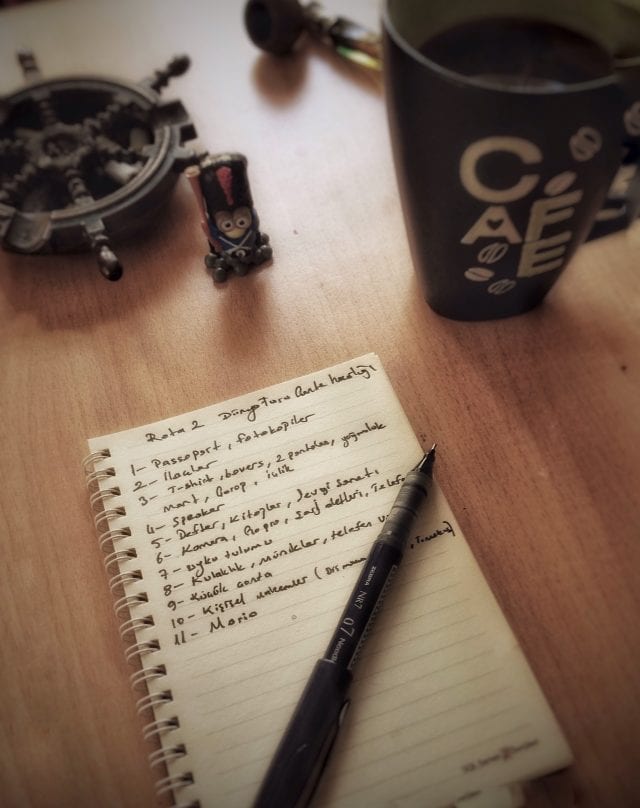 CAFE
Rota 2 Dünya Turu Çanta hazırlığı
1- Passaport, fotokopiler
2- İlaçlar
3- T-shirt, boxers, 2 pantolon, yağmurluk
mont, çorap, içlik
4- Speaker
5- Defter, Kitaplar,
6- Kamera, Go pro, şarj aletleri, Telefo
7- Uyku tulumu
8- Kulaklık, müzikler, telefon
9- Küçük çanta
10- Kişisel malzemeler (Diş
11- Mario
ZEBRA NR7 0.7 Needle